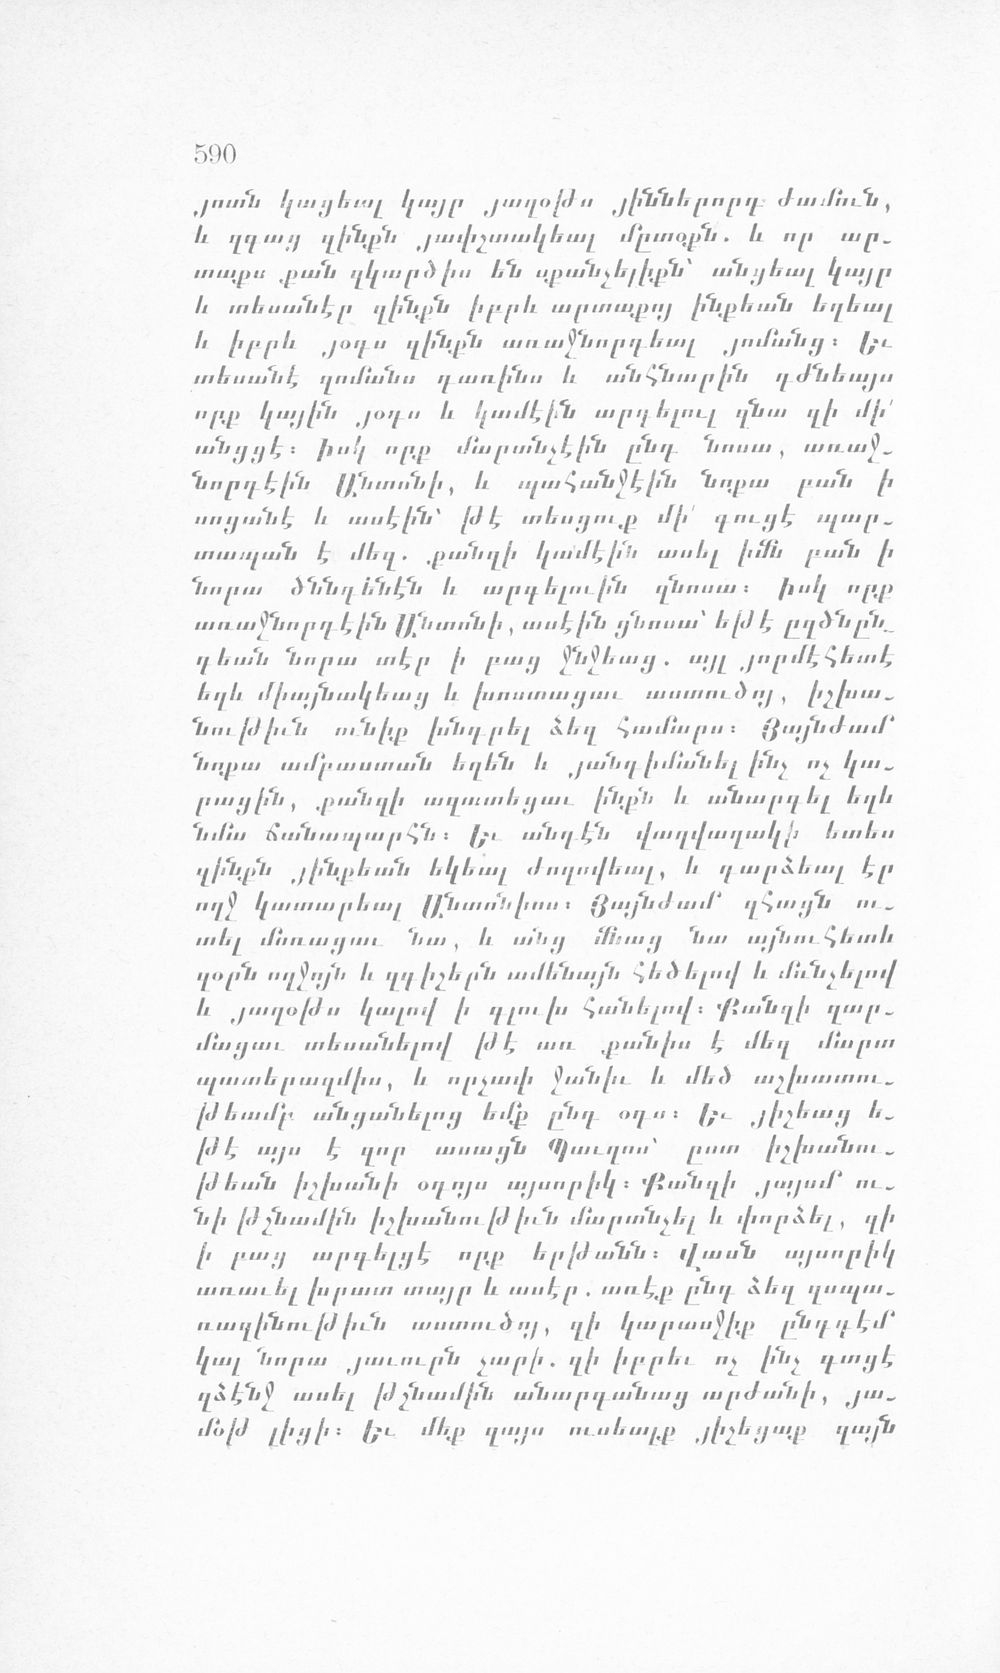 590
յոտն կացեալ կայր յաղօթս յիններորդ ժամուն,
և զգաց զինքն յափշտակեալ մըտօքն. և որ ար֊
տաքս քան զկարծիս են սքանչելիքն՝ անցեալ կայր
և տեսանէր զինքն իբրև արտաքոյ ինքեան եղեալ
և իբրև յօդս զինքն առաջնորդեալ յոմանց։ Եւ
տեսանէ զոմանս դառինս և անհնարին դժնեայս
որք կային յօդս և կամէին արգելուլ զնա զի մի՛
անցցէ։ Իսկ որք մարտնչէին ընդ նոսա, առաջ֊
նորդէին Անտոնի, և պահանջէին նոքա բան ի
սոցանէ և ասէին՝ թէ տեսցուք մի՛ գուցէ պար֊
տապան է մեզ. քանզի կամէին առել իմն բան ի
նորա ծննդենէն և արգելուին զնոսա։ Իսկ որք
առաջնորդէին Անտոնի, ասէին ցնոսա՝ եթէ ըզծնըն֊
դեան նորա տէր ի բաց ջնջեաց. այլ յորմէհետէ
եղև միայնակեաց և խոստացաւ աստուծոյ, իշխա֊
նութիւն ունիք խնդրել ձեզ համարս։ Յայնժամ
նոքա ամբաստան եղեն և յանդիմանել ինչ ոչ կա֊
րացին, քանզի ազատեցաւ ինքն և անարգել եղև
նմա ճանապարհն։ Եւ անդէն վաղվաղակի ետես
զինքն յինքեան եկեալ ժողովեալ, և դարձեալ էր
ողջ կատարեալ Անտոնիոս։ Յայնժամ զհացն ու֊
տել մոռացաւ նա, և անց մնաց նա այնուհետև
զօրն ողջոյն և զգիշերն ամենայն հեծելով և մռնչելով
և յաղօթս կալով ի գլուխ հանելով։ Քանզի զար֊
մացաւ տեսանելով թէ առ քանիս է մեզ մարտ
պատերազմիս, և որչափ ջանիւ և մեծ աշխատու֊
թեամբ անցանելոց եմք ընդ օդս։ Եւ յիշեաց ե֊
թէ այս է զոր ասացն Պաւղոս՝ ըստ իշխանու֊
թեան իշխանի օդոյս այսորիկ։ Քանզի յայսմ ու֊
նի թշնամին իշխանութիւն մարտնչել և փորձել, զի
ի բաց արգելցէ որք երթանն։ Վասն այսորիկ
առաւել խրատ տայր և ասէր. առէք ընդ ձեզ զսպա֊
ռազինութիւն աստուծոյ, զի կարասջիք ընդդէմ
կալ նորա յաւուրն չարի. զի իբրեւ ոչ ինչ գտցէ
զձէնջ ասել թշնամին անարգանաց արժանի, յա֊
մօթ լիցի։ Եւ մեք զայս ուսեալք յիշեցաք զայն